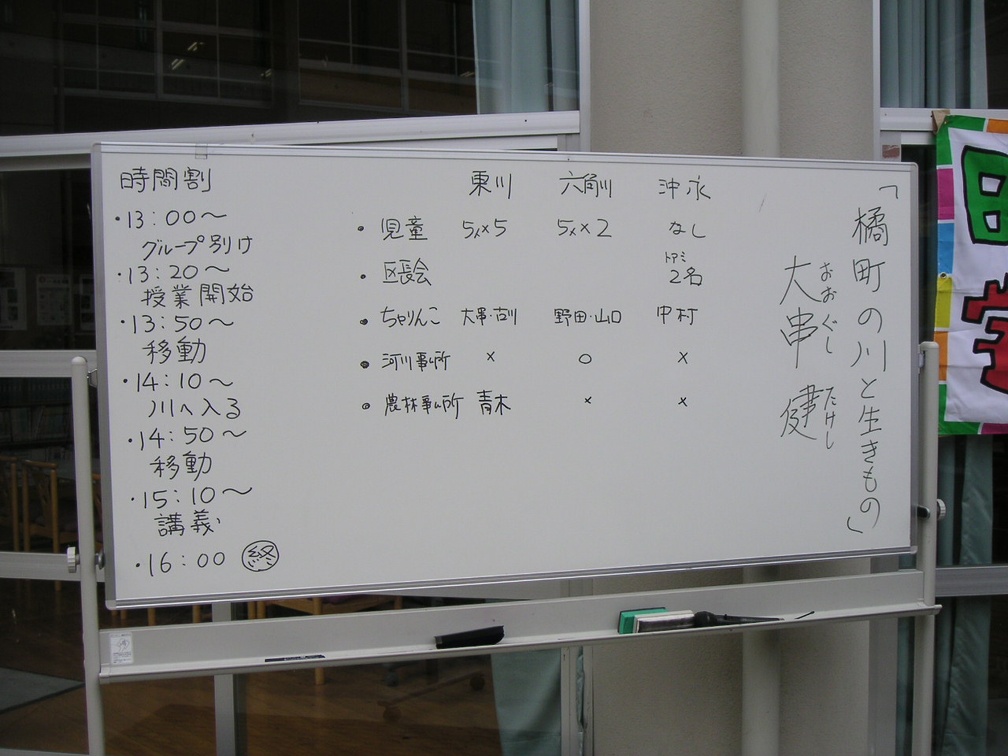 時間割
・13:00〜
グループ別け
・13:20〜
授業開始
・13:50〜
移動
・14:10〜
川へ入る
・14:50〜
移動
・15:10〜
講義
・16:00 終
東川 六角川 沖永
・児童 5人×5 5人×2 なし
トアミ
・区長会 2名
・ちゃりんこ 大串・古川 野田・山口 中村
・河川事ム所 × ○ ×
・農林事ム所 青木 × ×
「橘町の川と生きもの」
大串 健
おおぐし たけし